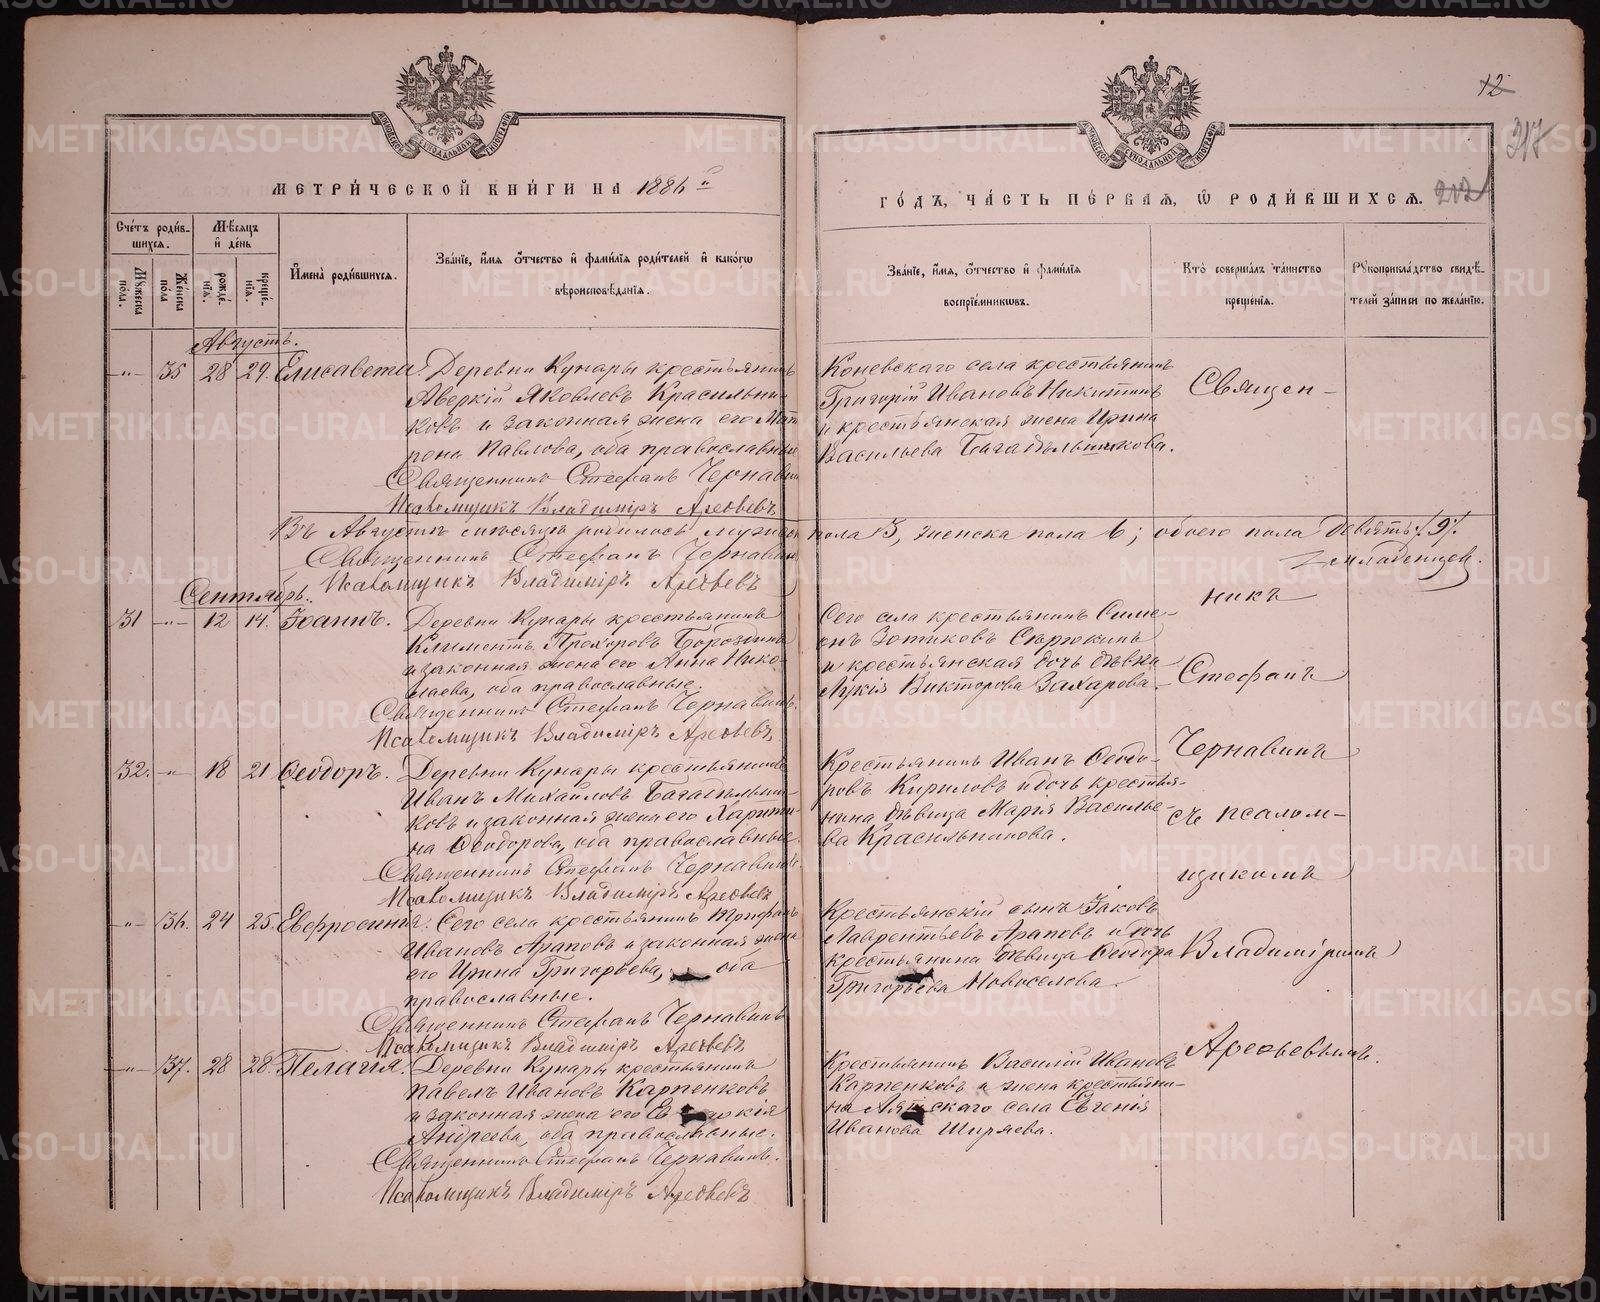 МЕТРИЧЕСКОЙ КНИГИ НА 1886 й
ГОДЪ, ЧАСТЬ ПЕРВАЯ, Ѿ РОДИВШИХСЯ.
12
317
202
МОСКОВСКОЙ СѴНОДАЛЬНОЙ ТИПОГРАФІИ
МОСКОВСКОЙ СѴНОДАЛЬНОЙ ТИПОГРАФІИ
Счетъ родив-
шихся.
Мѣсяцъ
и день
Мужеска пола.
Женска пола
рожде-
нія.
креще-
нія.
Имена родившихся.
Званіе, имя отчество и фамилія родителей и какого
вѣроисповѣданія.
Званіе, имя, отчество и фамилія
воспріемниковъ.
Кто совершалъ таинство
крещенія.
Рукоприкладство свидѣ-
телей записи по желанію.
Августъ.
-"- 35 28 29. Елисавета. Деревни Кунары крестьянинъ
Аверкій Яковлевъ Красильни-
ковъ и законная жена его Мат
рона Павлова, оба православные
Священникъ Стефанъ Чернавинъ
Псаломщикъ Владиміръ Арефьевъ
Коневскаго села крестьянинъ
Григорій Ивановъ Никитинъ
и крестьянская жена Ирина
Васильева Багадѣльщикова.
Въ Августѣ мѣсяцѣ родилось мужеск пола 3, женска пола 6; обоего пола девять /9/.
младенцев.
Священникъ Стефанъ Чернавинъ
Псаломщикъ Владиміръ Арефьевъ
Сентябрь.
31 -"- 12 14. Іоаннъ. Деревни Кунары крестьянинъ
Климентъ Прохоровъ Бороздинъ
и законная жена его Анна Нико-
лаева, оба православные.
Священникъ Стефанъ Чернавинъ.
Псаломщикъ Владиміръ Арефьевъ
Сего села крестьянинъ Симе-
онъ Зотиковъ Сюрюкинъ
и крестьянская дочь дѣвка
Лукія Викторова Захарова.
32. -"- 18 21 Ѳеодоръ. Деревни Кунары крестьянинъ
Иванъ Михайловъ Багадѣльщи-
ковъ и законная жена его Харити-
на Ѳеодорова, оба православные.
Священникъ Стефанъ Чернавинъ.
Псаломщикъ Владиміръ Арефьевъ
Крестьянинъ Иванъ Ѳеодо-
ровъ Кириловъ и дочь крестья-
нина дѣвица Марія Василье-
ва Красильникова.
-"- 36. 24 25. Евфросинія. Сего села крестьянинъ Трифанъ
Ивановъ Араповъ и законная жена
его Ирина Григорьева, оба
православные.
Священникъ Стефанъ Чернавинъ
Псаломщикъ Владиміръ Арефьевъ
Крестьянскій сынъ Іаковъ
Лаврентьевъ Араповъ и дочь
крестьянина дѣвица Ѳеодора
Григорьева Новоселова.
-"- 37. 28 28. Пелагія. Деревни Кунары крестьянинъ
Павелъ Ивановъ Карпенковъ
и законная жена его
Андреева, оба православные.
Священникъ Стефанъ Чернавинъ.
Псаломщикъ Владиміръ Арефьевъ
Крестьянинъ Василій Ивановъ
Карпенковъ и жена крестьяни-
на Аятскаго села Евгенія
Иванова Ширяева.
Священ-
никъ
Стефанъ
Чернавинъ
съ псалом-
щикомъ
Владиміромъ
Арефьевымъ.
METRIKI.GASO-URAL.RU